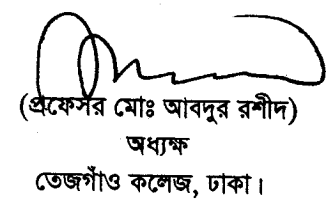 (প্রফেসর মোঃ আবদুর রশীদ)
অধ্যক্ষ
তেজগাঁও কলেজ, ঢাকা।